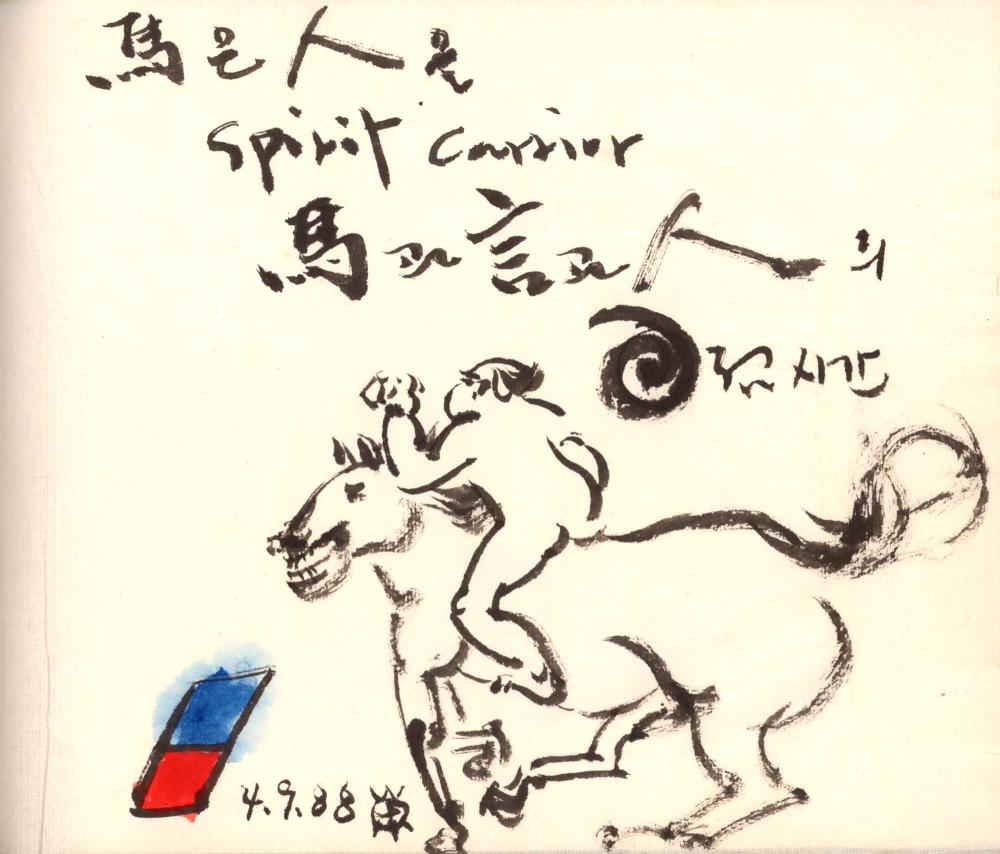 馬은 人
spirit carrier
馬 言 人의
시간
4.9.88